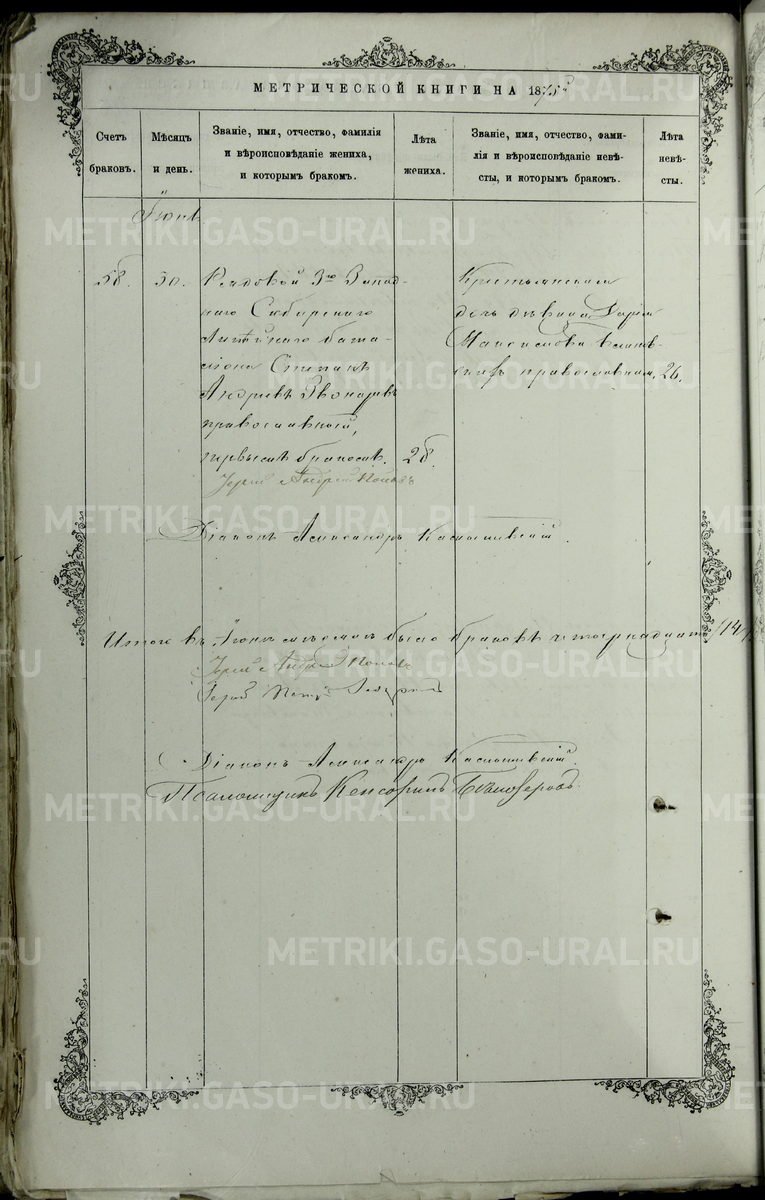 МЕТРИЧЕСКОЙ КНИГИ НА 1875й
Счетъ
браковъ.
Мѣсяцъ
и день.
Званіе, имя, отчество, фамилія
и вѣроисповѣданіе жениха,
и которымъ бракомъ.
Лѣта
жениха.
Званіе, имя, отчество, фами-
лія и вѣроисповѣданіе невѣ-
сты, и которымъ бракомъ.
Лѣта
невѣ-
сты.
58. 30. Рядовой 3го Запад-
наго Сибирскаго
Линѣйнаго бата-
ліона Степанъ
Андреевъ Звонаревъ
православный,
первымъ бракомъ. 28.
Крестьянская
дочь дѣвица Дарія
Максимова
православная. 26.
Іерей Андрей Поповъ
Діаконъ Александръ
Итого въ мѣсяцѣ было браковъ четырнадцать /14/
Іерей Андрей Поповъ
Іерей Петръ
Діаконъ Александръ
Псаломщикъ Кенсоринъ Бѣлозеровъ
METRIKI.GASO-URAL.RU